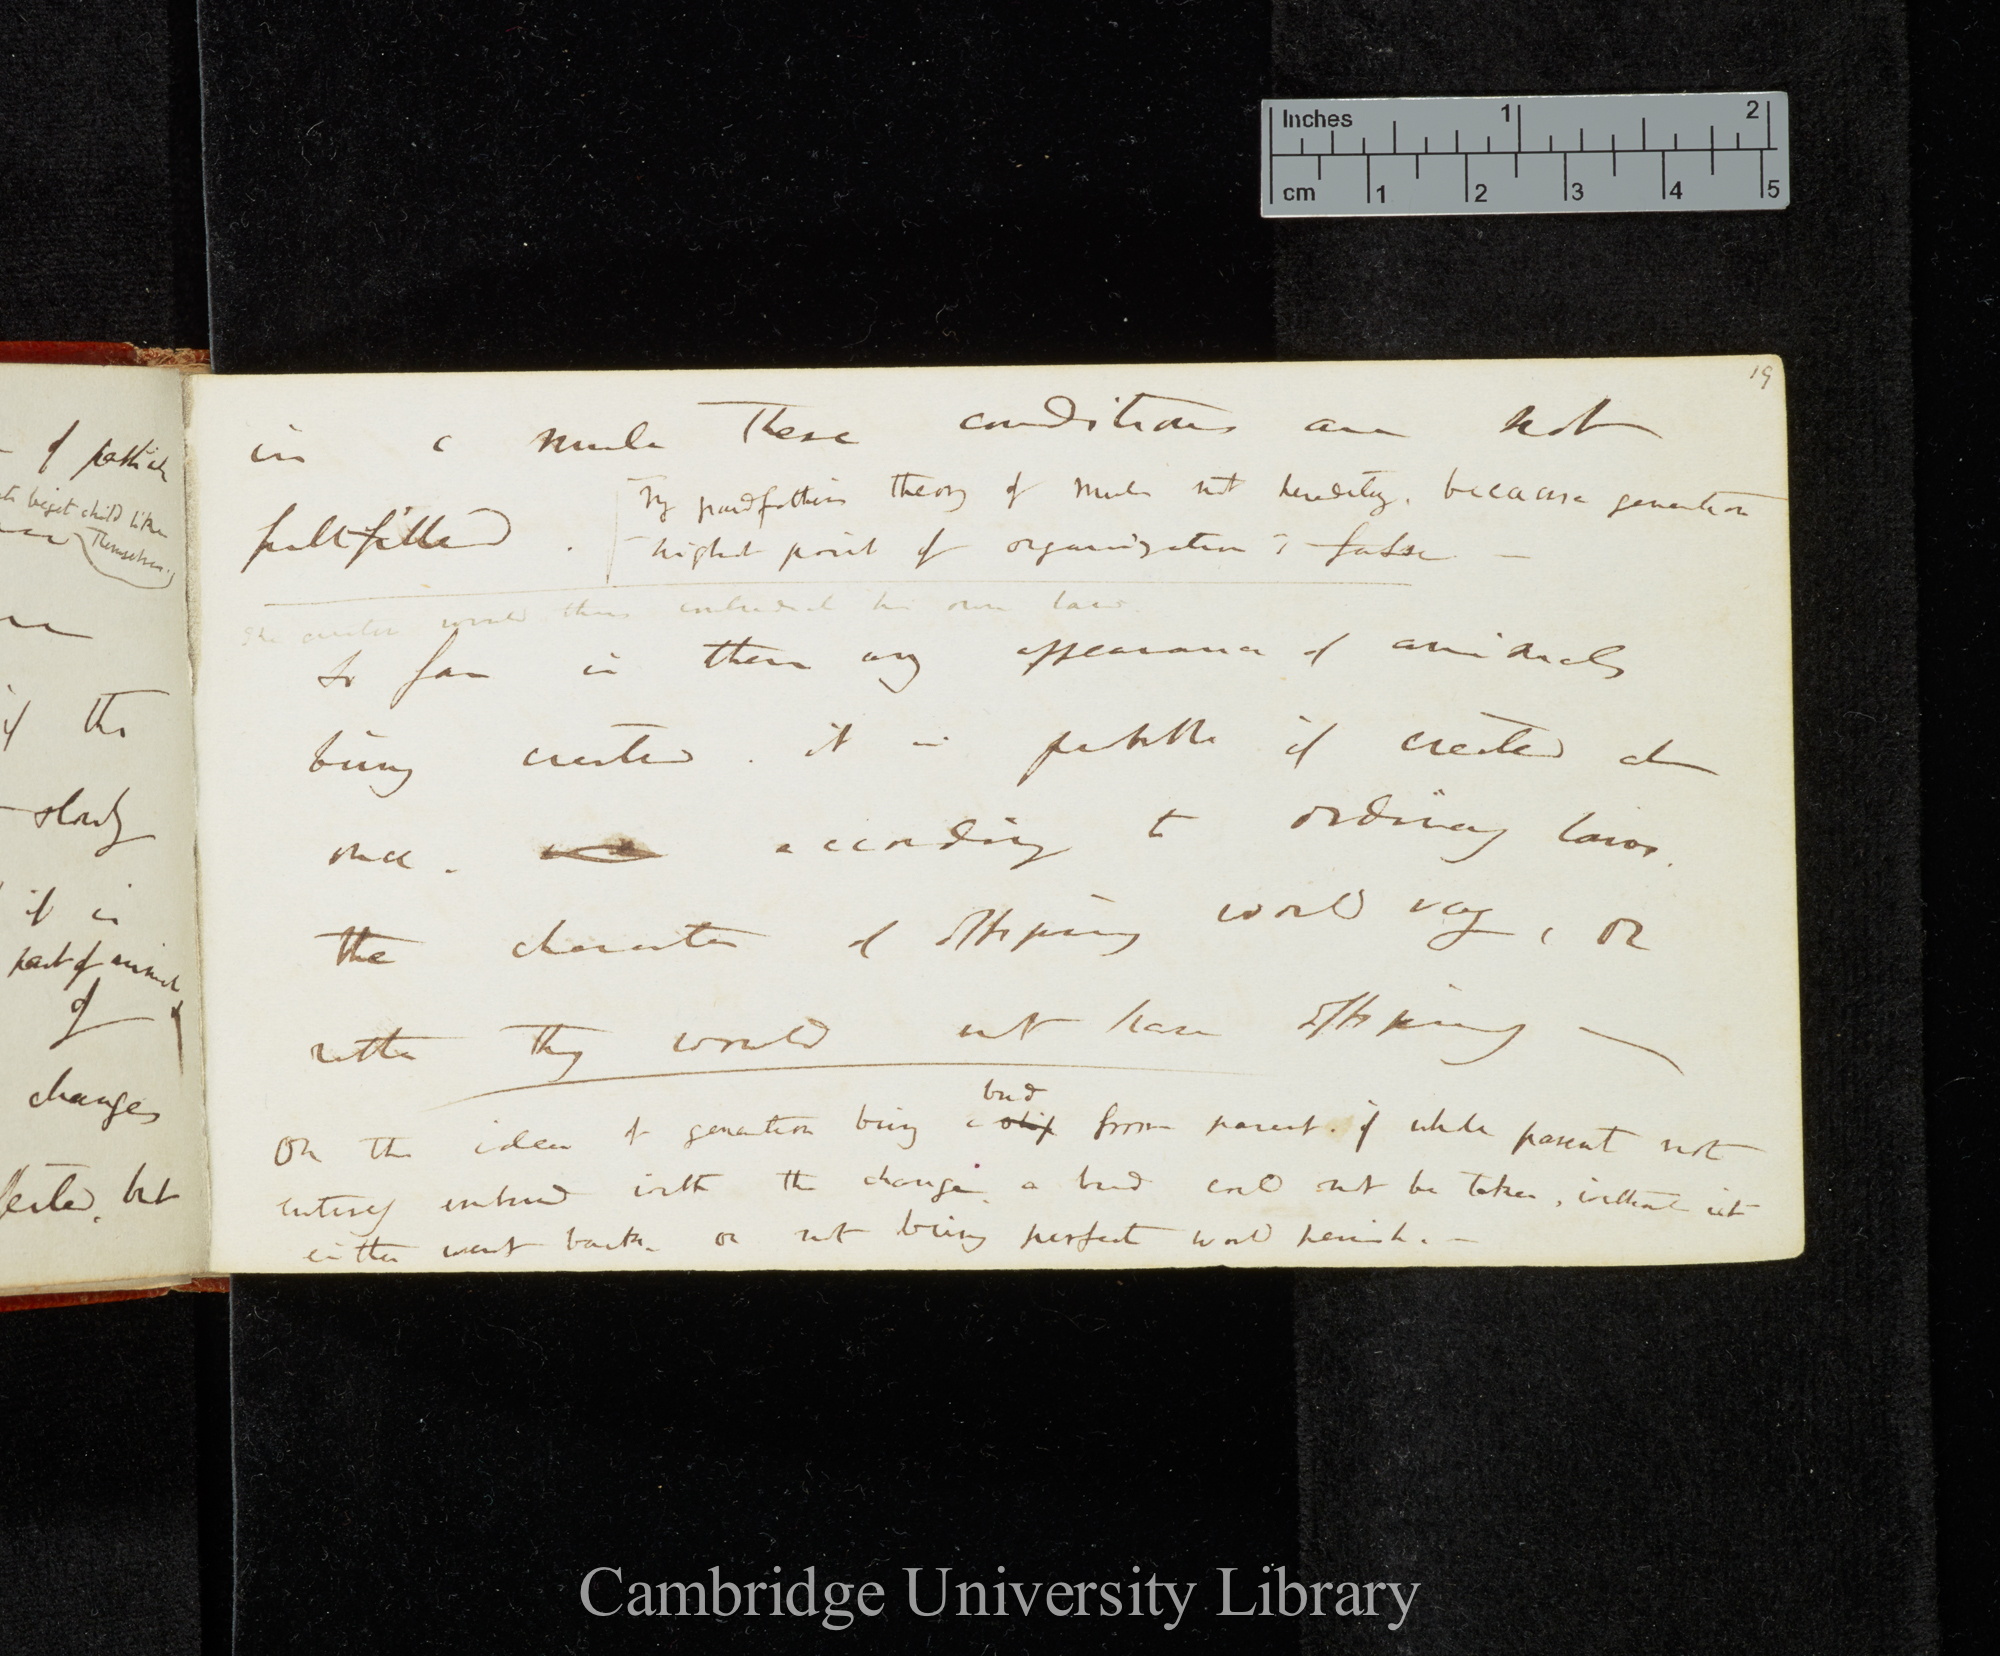 Inches 1 2
cm 1 2 3 4 5
of
beget child like
themselves.
if the
slowly
it is
part of animal
of
changes
but
19
in a mule these conditions are not
fullfilled .
My grandfathers theory of mules not hereditary, because generation
highest point of organization is false —
The creator would thus contradict his own law.
So far is there any appearance of animals
being created . it is probable if created at
once . according to ordinary laws.
the character of offspring would vary, or
rather they would not have offspring —
bud
On the idea of generation being a slip from parent. if whole parent not
entirely imbued with the change, a bud could not be taken, without it
either went back. or not being perfect would perish. —
Cambridge University Library